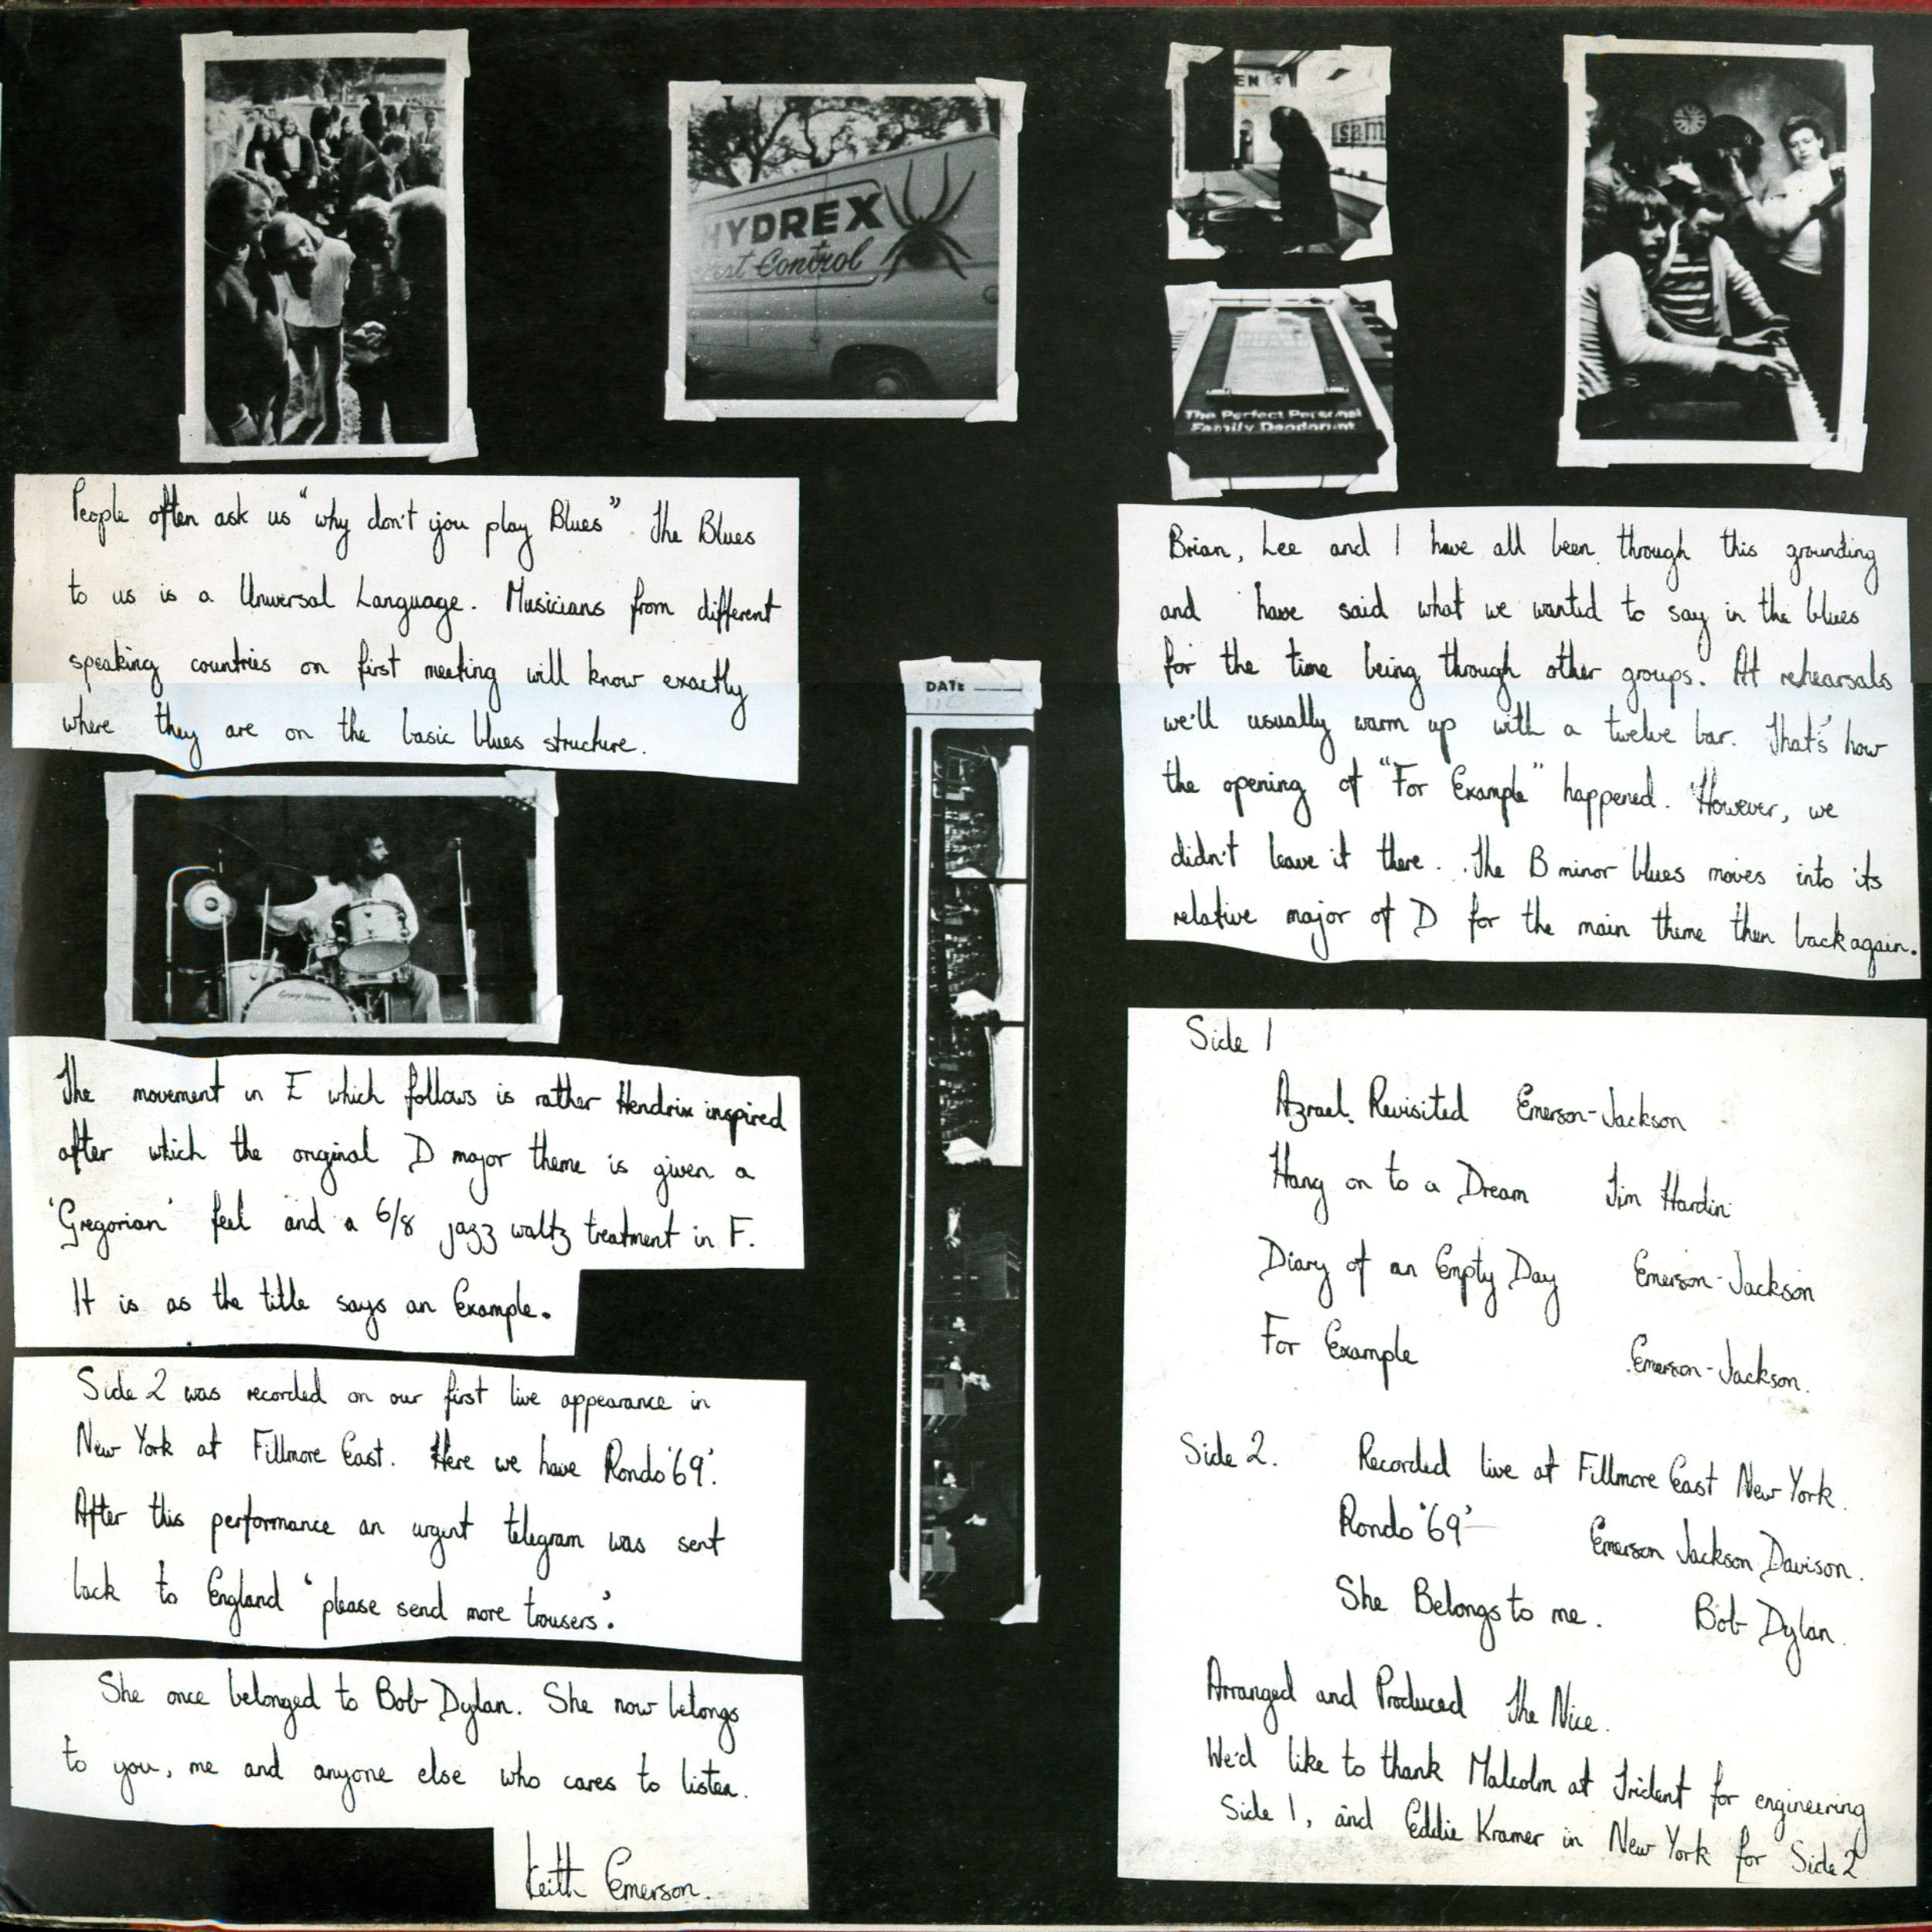 HYDREX
Control
EN
sam
The Perfect Personal
Family Deodorant
People often ask us "why don't you play Blues". The Blues
to us is a Universal Language. Musicians from different
speaking countries on first meeting will know exactly
where they are on the basic blues structure.
Brian, Lee and I have all been through this grounding
and have said what we wanted to say in the blues
for the time being through other groups. At rehearsals
we'll usually warm up with a twelve bar. That's how
the opening of "For Example" happened. However, we
didn't leave it there. The B minor blues moves into its
relative major of D for the main theme then back again.
DATE
The movement in E which follows is rather Hendrix inspired
after which the original D major theme is given a
'Gregorian' feel and a 6/8 jazz waltz treatment in F.
It is as the title says an Example.
Side 2 was recorded on our first live appearance in
New York at Fillmore East. Here we have Rondo '69'.
After this performance an urgent telegram was sent
back to England 'please send more trousers'.
She once belonged to Bob Dylan. She now belongs
to you, me and anyone else who cares to listen.
Keith Emerson.
Side 1
Azrael Revisited Emerson-Jackson
Hang on to a Dream Tim Hardin
Diary of an Empty Day Emerson-Jackson
For Example Emerson-Jackson.
Side 2. Recorded live at Fillmore East New York.
Rondo '69' Emerson Jackson Davison.
She Belongs to me. Bob Dylan.
Arranged and Produced The Nice.
We'd like to thank Malcolm at Trident for engineering
Side 1, and Eddie Kramer in New York for Side 2